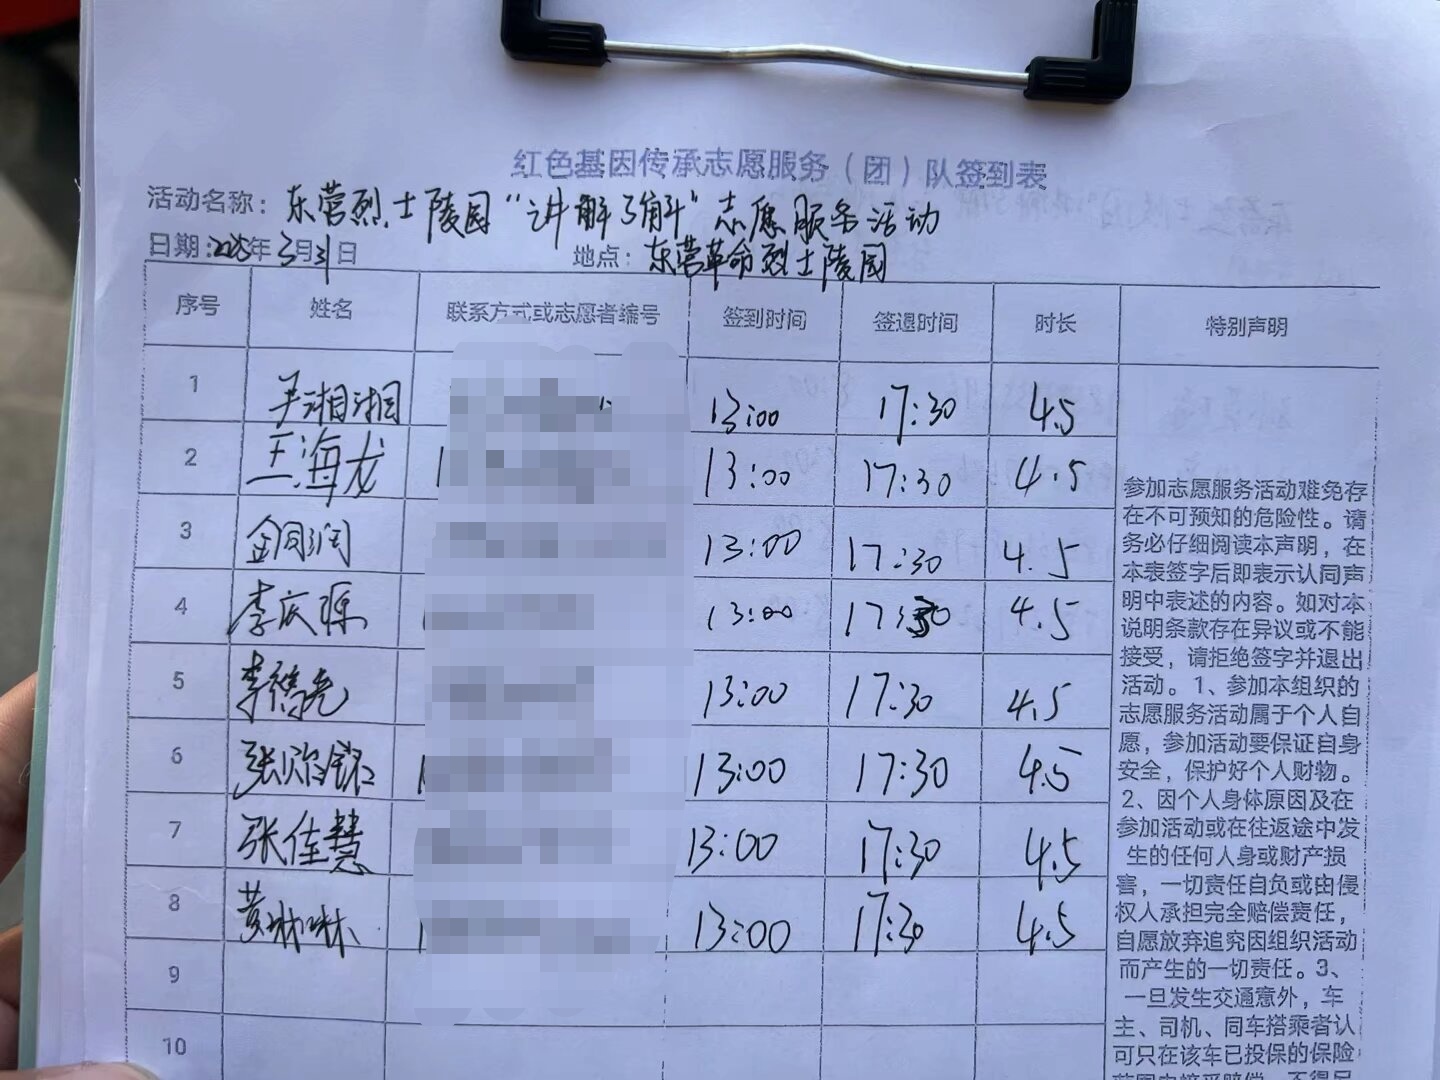 红色基因传承志愿服务（团）队签到表
活动名称：东营烈士陵园“讲解了解”志愿服务活动
日期：2025年3月31日 地点：东营革命烈士陵园
序号 姓名 联系方式或志愿者编号 签到时间 签退时间 时长 特别声明
1 尹湘湘 13:00 17:30 4.5
2 王海龙 13:00 17:30 4.5
3 13:00 17:30 4.5
4 李庆 13:00 17:30 4.5
5 李 13:00 17:30 4.5
6 张 13:00 17:30 4.5
7 张佳慧 13:00 17:30 4.5
8 黄琳琳 13:00 17:30 4.5
9
10
参加志愿服务活动难免存
在不可预知的危险性。请
务必仔细阅读本声明，在
本表签字后即表示认同声
明中表述的内容。如对本
说明条款存在异议或不能
接受，请拒绝签字并退出
活动。1、参加本组织的
志愿服务活动属于个人自
愿，参加活动要保证自身
安全，保护好个人财物。
2、因个人身体原因及在
参加活动或在往返途中发
生的任何人身或财产损
害，一切责任自负或由侵
权人承担完全赔偿责任，
自愿放弃追究因组织活动
而产生的一切责任。3、
一旦发生交通意外，车
主、司机、同车搭乘者认
可只在该车已投保的保险